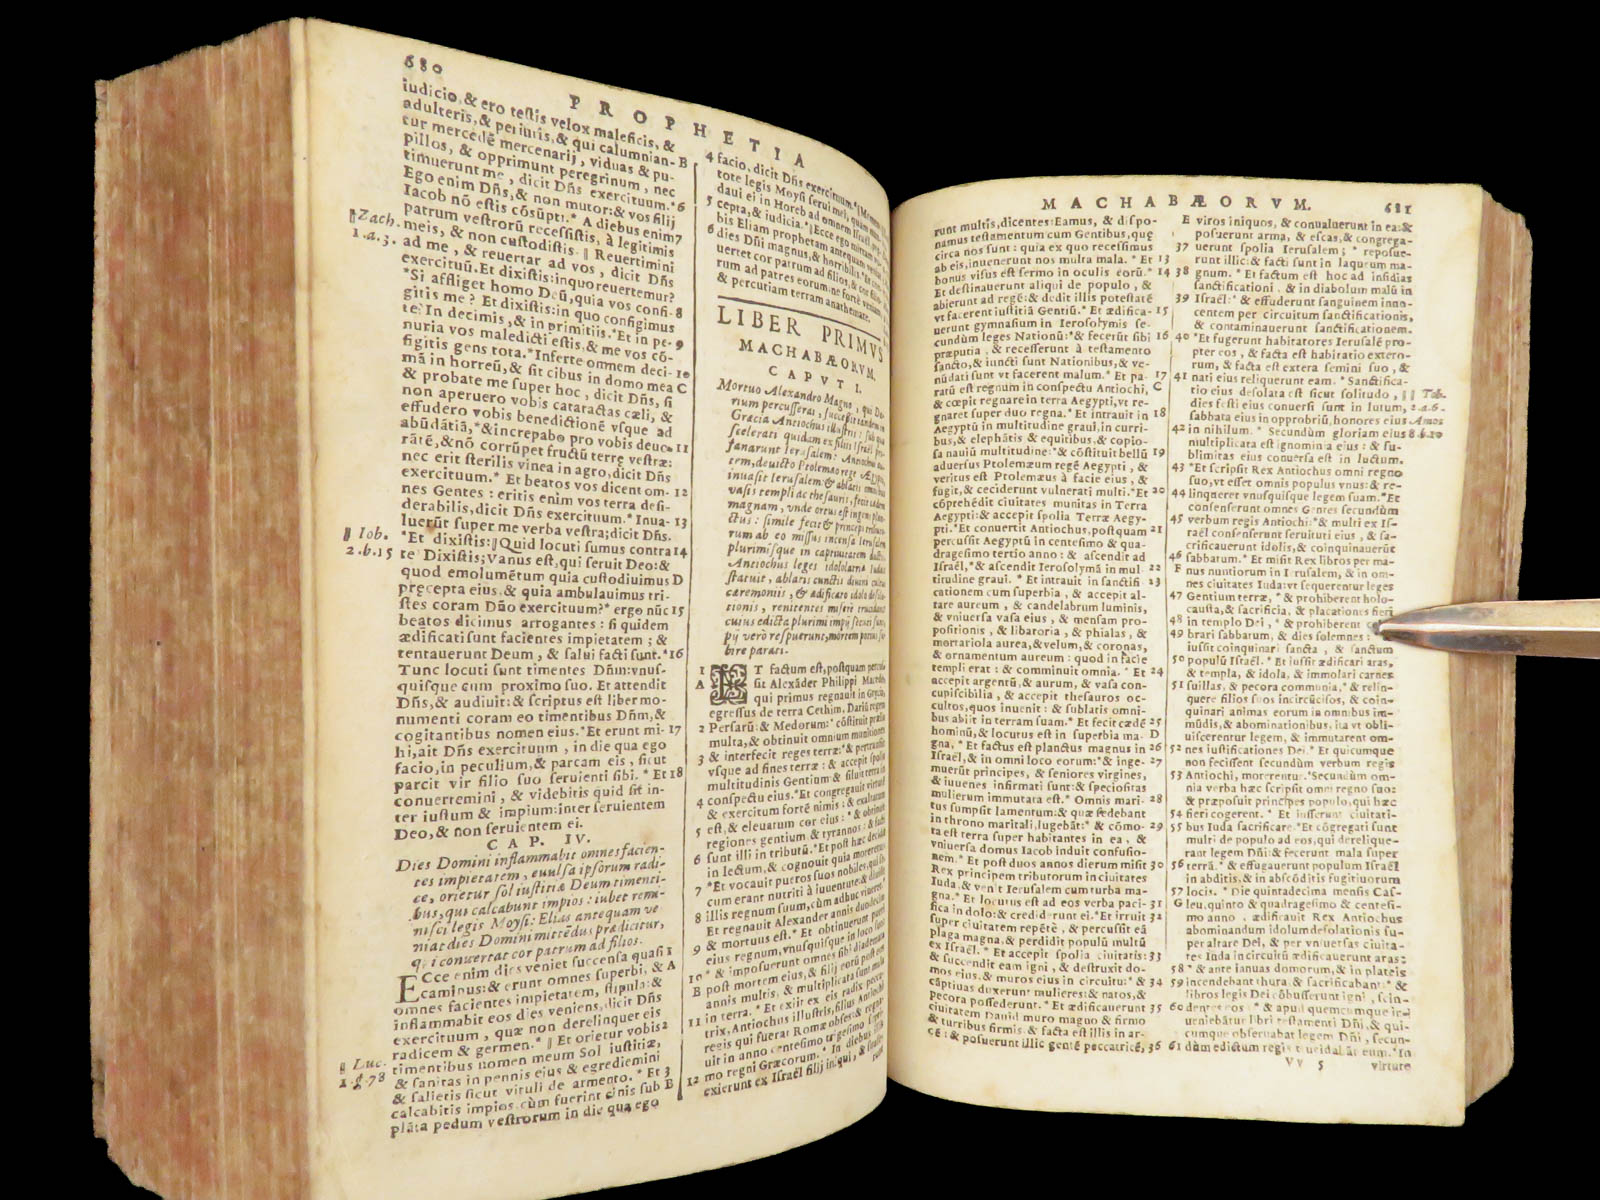 680
PROPHETIA
iudicio, & ero testis velox maleficis, &
adulteris, & periuris, & qui calumnian- B
tur mercedē mercenarij, viduas & pu-
pillos, & opprimunt peregrinum, nec
timuerunt me, dicit Dñs exercituum.*6
Ego enim Dñs, & non mutor: & vos filij
Iacob nō estis cōsūpti.* A diebus enim 7
patrum vestrorū recessistis, à legitimis
‖ Zach. 1.a.3.
meis, & non custodistis. ‖ Reuertimini
ad me, & reuertar ad vos, dicit Dñs
exercituū. Et dixistis: inquo reuertemur?
*Si affliget homo Deū, quia vos confi- 8
gitis me? Et dixistis: in quo configimus
te? In decimis, & in primitiis.*Et in pe- 9
nuria vos maledicti estis, & me vos cō-
figitis gens tota.*Inferte omnem deci- 10
mā in horreū, & sit cibus in domo mea C
& probate me super hoc, dicit Dñs, si
non aperuero vobis cataractas cæli, &
effudero vobis benedictionē vsque ad
abūdātiā,*& increpabo pro vobis deuo- 11
rātē, & nō corrūpet fructū terrę vestræ:
nec erit sterilis vinea in agro, dicit Dñs
exercituum.* Et beatos vos dicent om- 12
nes Gentes: eritis enim vos terra desi-
derabilis, dicit Dñs exercituum.* Inua- 13
luerūt super me verba vestra; dicit Dñs.
‖ Iob. 2.b.15
*Et dixistis: ‖ Quid locuti sumus contra 14
te? Dixistis; Vanus est, qui seruit Deo: &
quod emolumētum quia custodiuimus D
pręcepta eius, & quia ambulauimus tri-
stes coram Dño exercituum?* ergo nūc 15
beatos dicimus arrogantes: si quidem
ædificati sunt facientes impietatem; &
tentauerunt Deum, & salui facti sunt.*16
Tunc locuti sunt timentes Dñm: vnus-
quisque cum proximo suo. Et attendit
Dñs, & audiuit: & scriptus est liber mo-
numenti coram eo timentibus Dñm, &
cogitantibus nomen eius.*Et erunt mi- 17
hi, ait Dñs exercituum, in die qua ego
facio, in peculium, & parcam eis, sicut
parcit vir filio suo seruienti sibi. * Et 18
conuertemini, & videbitis quid sit in-
ter iustum & impium: inter seruientem
Deo, & non seruientem ei.
CAP. IV.
Dies Domini inflammabit omnes facien-
tes impietatem, euulsa ipsorum radi-
ce, orietur sol iustitiæ Deum timenti-
bus, qui calcabunt impios: iubet remi-
nisci legis Moysi: Elias antequam ve
niat dies Domini mittēdus prædicitur,
qui conuertat cor patrum ad filios.
ECce enim dies veniet succensa quasi 1
caminus: & erunt omnes superbi, & A
omnes facientes impietatem, stipula: &
inflammabit eos dies veniens, dicit Dñs
exercituum, quæ non derelinquet eis
radicem & germen.* ‖ Et orietur vobis 2
‖ Luc. 1.g.78
timentibus nomen meum Sol iustitiæ,
& sanitas in pennis eius & egrediemini
& salietis sicut vituli de armento. * Et 3
calcabitis impios cùm fuerint cinis sub B
plāta pedum vestrorum in die qua ego
4 facio, dicit Dñs exercituum.*
tote legis Moysi serui mei, quam man-
daui ei in Horeb ad omnem Israël
5 cepta, & iudicia.* ‖ Ecce ego mittam vo-
bis Eliam prophetam antequam veniat
6 dies Dñi magnus, & horribilis.*
uertet cor patrum ad filios, & cor filio-
rum ad patres eorum: ne fortè veniam
& percutiam terram anathemate.
LIBER PRIMVS
MACHABÆORVM.
CAPVT I.
Mortuo Alexandro Magno, qui Da-
rium percusserat, succeßit tandem in
Græcia Antiochus illustris: sub quo
scelerati quidam ex filiis Israël pro-
fanarunt Ierusalem: Antiochus au-
tem, deuicto Ptolemæo rege Ægypti,
inuasit Ierusalem: & ablatis omnibus
vasis templi ac thesauris, fecit cædem
magnam, vnde ortus est ingens plan-
ctus: simile fecit & princeps tributo-
rum ab eo missus incensa Ierusalem
plurimisque in captiuitatem ductis.
Antiochus leges idololatriæ Iudæis
statuit, ablatis cunctis diuini cultus
cæremoniis, & ædificato idolo desola-
tionis, renitentes miserè trucidant
cuius edicta plurimi impij secuti sunt,
pij verò respuerunt, mortem potius su-
bire parati.
1 ET factum est, postquam percus-
A sit Alexāder Philippi Macedo,
qui primus regnauit in Græcia,
egressus de terra Cethim, Dariū regem
2 Persarū: & Medorum:* cōstituit prælia
multa, & obtinuit omnium munitiones
3 & interfecit reges terræ:*& pertransiit
vsque ad fines terræ: & accepit spolia
multitudinis Gentium & siluit terra in
4 conspectu eius.*Et congregauit virtutē
& exercitum fortē nimis: & exaltatum
5 est, & eleuatum cor eius: * & obtinuit
regiones gentium & tyrannos: & facti
6 sunt illi in tributū.*Et post hæc decidit
in lectum, & cognouit quia moreretur.
7 *Et vocauit pueros suos nobiles, qui se-
cum erant nutriti à iuuentute: & diuisit
8 illis regnum suum, cùm adhuc viueret.*
Et regnauit Alexander annis duodecim
9 & mortuus est.* Et obtinuerunt pueri
eius regnum, vnusquisque in loco suo:
10 * & imposuerunt omnes sibi diademata
B post mortem eius, & filij eorū post eos
annis multis, & multiplicata sunt mala
11 in terra. * Et exiit ex eis radix pecca-
trix, Antiochus illustris, filius Antiochi
regis qui fuerat Romæ obses: & regna-
uit in anno centesimo trigesimo septi-
12 mo regni Græcorum. * In diebus illis
exierunt ex Israël filij iniqui, & suase-
runt
MACHABÆORVM.
681
runt multis, dicentes: Eamus, & dispo-
namus testamentum cum Gentibus, quę
circa nos sunt: quia ex quo recessimus
ab eis, inuenerunt nos multa mala. * Et 13
bonus visus est sermo in oculis eorū.* 14
Et destinauerunt aliqui de populo, &
abierunt ad regē: & dedit illis potestatē
vt facerent iustitiā Gentiū.* Et ædifica- 15
uerunt gymnasium in Ierosolymis se-
cundùm leges Nationū:* & fecerūt sibi 16
præputia, & recesserunt à testamento
sancto, & iuncti sunt Nationibus, & ve-
nūdati sunt vt facerent malum.* Et pa- 17
ratū est regnum in conspectu Antiochi, C
& cœpit regnare in terra Aegypti, vt re-
gnaret super duo regna.* Et intrauit in 18
Aegyptū in multitudine graui, in curri-
bus, & elephātis & equitibus, & copio-
sa nauiū multitudine:*& cōstituit bellū 19
aduersus Ptolemæum regē Aegypti, &
veritus est Ptolemæus à facie eius, &
fugit, & ceciderunt vulnerati multi.*Et 20
cōprehēdit ciuitates munitas in Terra
Aegypti: & accepit spolia Terræ Aegy-
pti.*Et conuertit Antiochus, postquam 21
percussit Aegyptū in centesimo & qua-
dragesimo tertio anno: & ascendit ad
Israël,*& ascendit Ierosolymā in mul- 22
titudine graui. * Et intrauit in sanctifi- 23
cationem cum superbia, & accepit al-
tare aureum, & candelabrum luminis,
& vniuersa vasa eius, & mensam pro-
positionis, & libatoria, & phialas, &
mortariola aurea, & velum, & coronas,
& ornamentum aureum: quod in facie
templi erat: & comminuit omnia. * Et 24
accepit argentū, & aurum, & vasa con-
cupiscibilia, & accepit thesauros oc-
cultos, quos inuenit: & sublatis omni-
bus abiit in terram suam.* Et fecit cædē 25
hominū, & locutus est in superbia ma- D
gna, * Et factus est planctus magnus in 26
Israël, & in omni loco eorum:*& inge- 27
muerūt principes, & seniores virgines,
& iuuenes infirmati sunt: & speciositas
mulierum immutata est.* Omnis mari- 28
tus sumpsit lamentum: & quæ sedebant
in throno maritali, lugebāt:* & cōmo- 29
ta est terra super habitantes in ea, &
vniuersa domus Iacob induit confusio-
nem.* Et post duos annos dierum misit 30
Rex principem tributorum in ciuitates
Iuda, & venit Ierusalem cum turba ma-
gna.* Et locutus est ad eos verba paci- 31
fica in dolo: & crediderunt ei.*Et irruit 32
super ciuitatem repētē, & percussit eā
plaga magna, & perdidit populū multū
ex Israël. * Et accepit spolia ciuitatis: 33
& succendit eam igni, & destruxit do-
mos eius, & muros eius in circuitu:* & 34
cāptiuas duxerunt mulieres: & natos, &
pecora possederunt. * Et ædificauerunt 35
ciuitatem Dauid muro magno & firmo
& turribus firmis & facta est illis in ar-
cē: & posuerunt illic gentē peccatricē, 36
E viros iniquos, & conualuerunt in ea: &
posuerunt arma, & escas, & congrega-
37 uerunt spolia Ierusalem; * reposue-
runt illic: & facti sunt in laqueum ma-
38 gnum. * Et factum est hoc ad insidias
sanctificationi, & in diabolum malū in
39 Israël:* & effuderunt sanguinem inno-
centem per circuitum sanctificationis,
& contaminauerunt sanctificationem.
40 *Et fugerunt habitatores Ierusalē pro-
pter eos, & facta est habitatio extero-
rum, & facta est extera semini suo, &
41 nati eius reliquerunt eam. * Sanctifica-
tio eius desolata est sicut solitudo, ‖
‖ Tob. 2.a.6. Amos 8.b.10
dies festi eius conuersi sunt in lutum,
sabbata eius in opprobriū, honores eius
42 in nihilum. * Secundùm gloriam eius
multiplicata est ignominia eius: & su-
blimitas eius conuersa est in luctum.
43 *Et scripsit Rex Antiochus omni regno
suo, vt esset omnis populus vnus: & re-
44 linqueret vnusquisque legem suam.*Et
consenserunt omnes Gentes secundùm
45 verbum regis Antiochi:* & multi ex Is-
raël consenserunt seruituti eius, & sa-
crificauerunt idolis, & coinquinauerūt
46 sabbatum.* Et misit Rex libros per ma-
F nus nuntiorum in Ierusalem, & in om-
nes ciuitates Iuda: vt sequerentur leges
47 Gentium terræ, * & prohiberent holo-
causta, & sacrificia, & placationes fieri
48 in templo Dei, * & prohiberent
49 brari sabbatum, & dies solemnes:
iussit coinquinari sancta, & sanctum
50 populū Israël. * Et iussit ædificari aras,
& templa, & idola, & immolari carnes
51 suillas, & pecora communia,* & relin-
quere filios suos incircūcisos, & coin-
quinari animas eorum in omnibus im-
mūdis, & abominationibus, ita vt obli-
uiscerentur legem, & immutarent om-
52 nes iustificationes Dei.* Et quicumque
non fecissent secundùm verbum regis
53 Antiochi, morerentur.*Secundùm om-
nia verba hæc scripsit omni regno suo:
& præposuit principes populo, qui hæc
54 fieri cogerent. * Et iusserunt ciuitati-
55 bus Iuda sacrificare.*Et cōgregati sunt
multi de populo ad eos, qui derelique-
rant legem Dñi: & fecerunt mala super
56 terrā.* & effugauerunt populum Israël
in abditis, & in abscōditis fugitiuorum
57 locis. * Die quintadecima mensis Cas-
G leu, quinto & quadragesimo & centesi-
mo anno. ædificauit Rex Antiochus
abominandum idolum desolationis su-
per altare Dei, & per vniuersas ciuita-
tes Iuda in circuitū ædificauerunt aras:
58 * & ante ianuas domorum, & in plateis
59 incendebant thura, & sacrificabant:* &
libros legis Dei cōbusserunt igni, scin-
60 dentes eos: * & apud quemcumque in-
ueniebātur libri testamenti Dñi, & qui-
cumque obseruabat legem Dñi, secun-
61 dùm edictum regis trucidabāt eum.*In
VV 5
virtute